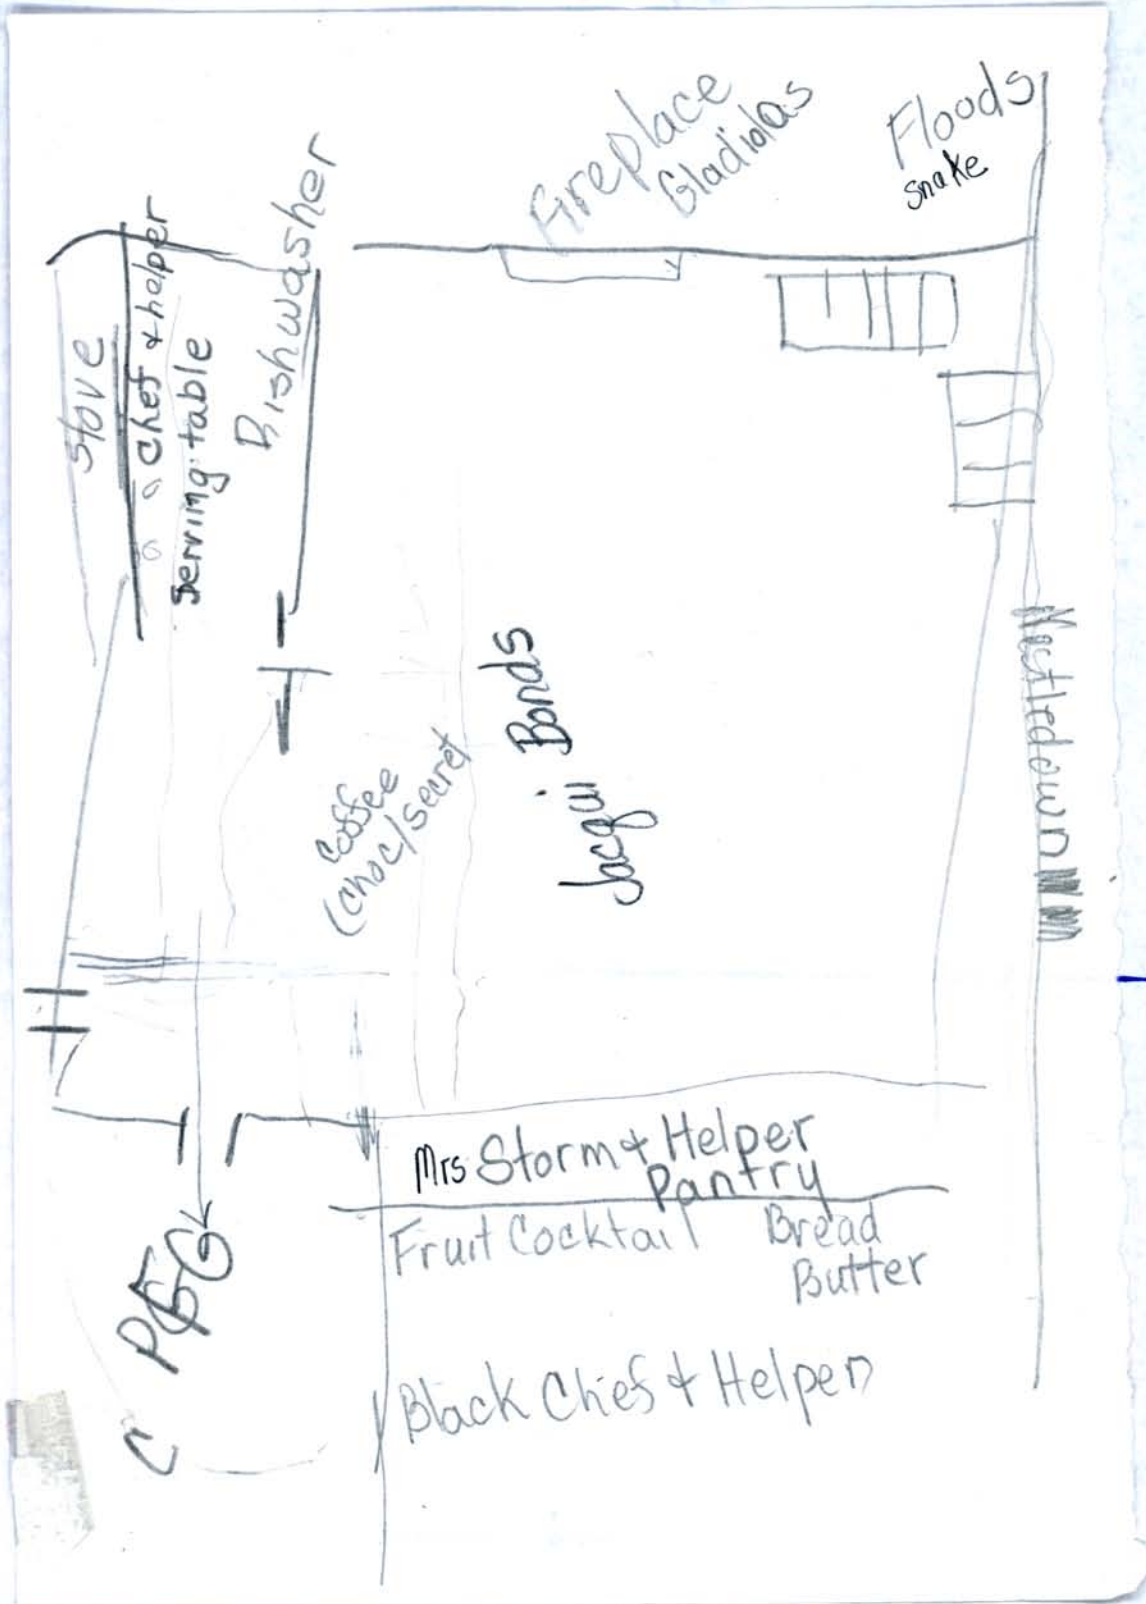 Fireplace
Gladiolas
Floods
snake
Stove
Chef & helper
Serving table
Dishwasher
Nestledown
Jacqui Bonds
Coffee
(choc/secret
Mrs Storm & Helper
Pantry
Fruit Cocktail
Bread
Butter
Black Chef & Helper
C